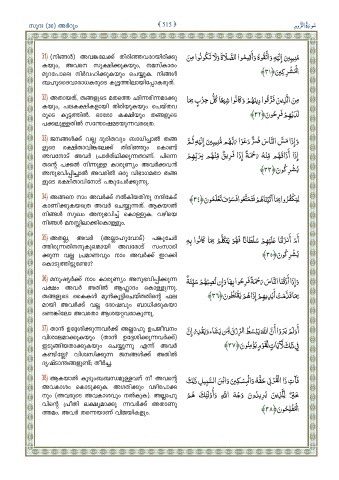 സൂറ: (30) അർറൂം
﴾ 515 ﴿
سورة الروم
31) (നിങ്ങൾ) അവങ്കലേക്ക് തിരിഞ്ഞവരായിരിക്കു
കയും, അവനെ സൂക്ഷിക്കുകയും, നമസ്കാരം
മുറപോലെ നിർവഹിക്കുകയും ചെയ്യുക. നിങ്ങൾ
ബഹുദൈവാരാധകരുടെ കൂട്ടത്തിലായിപ്പോകരുത്.
مُنِيبِينَ إِلَيْهِ وَاتَّقُوهُ وَأَقِيمُوا الصَّلَاةَ وَلَا تَكُونُوا مِنَ
الْمُشْرِكِينَ ﴿٣١﴾
32) അതായത്, തങ്ങളുടെ മതത്തെ ഛിന്നഭിന്നമാക്കു
കയും, പലകക്ഷികളായി തിരിയുകയും ചെയ്തവ
രുടെ കൂട്ടത്തിൽ. ഓരോ കക്ഷിയും തങ്ങളുടെ
പക്കലുള്ളതിൽ സന്തോഷമടയുന്നവരത്രെ.
مِنَ الَّذِينَ فَرَّقُوا دِينَهُمْ وَكَانُوا شِيَعًا كُلُّ حِزْبٍ بِمَا
لَدَيْهِمْ فَرِحُونَ ﴿٣٢﴾
33) ജനങ്ങൾക്ക് വല്ല ദുരിതവും ബാധിച്ചാൽ തങ്ങ
ളുടെ രക്ഷിതാവിങ്കലേക്ക് തിരിഞ്ഞും കൊണ്ട്
അവനോട് അവർ പ്രാർത്ഥിക്കുന്നതാണ്. പിന്നെ
തന്റെ പക്കൽ നിന്നുള്ള കാരുണ്യം അവർക്കവൻ
അനുഭവിപ്പിച്ചാൽ അവരിൽ ഒരു വിഭാഗമതാ തങ്ങ
ളുടെ രക്ഷിതാവിനോട് പങ്കുചേർക്കുന്നു.
وَإِذَا مَسَّ النَّاسَ ضُرٌّ دَعَوْا رَبَّهُمْ مُنِيبِينَ إِلَيْهِ ثُمَّ
إِذَا أَذَاقَهُمْ مِنْهُ رَحْمَةً إِذَا فَرِيقٌ مِنْهُمْ بِرَبِّهِمْ
يُشْرِكُونَ ﴿٣٣﴾
34) അങ്ങനെ നാം അവർക്ക് നൽകിയതിനു നന്ദികേട്
കാണിക്കുകയത്രെ അവർ ചെയ്യുന്നത്. ആകയാൽ
നിങ്ങൾ സുഖം അനുഭവിച്ച് കൊള്ളുക. വഴിയെ
നിങ്ങൾ മനസ്സിലാക്കിക്കൊള്ളും.
لِيَكْفُرُوا بِمَا آتَيْنَاهُمْ فَتَمَتَّعُوا فَسَوْفَ تَعْلَمُونَ ﴿٣٤﴾
35) അതല്ല, അവർ (അല്ലാഹുവോട്) പങ്കുചേർ
ത്തിരുന്നതിനനുകൂലമായി അവരോട് സംസാരി
ക്കുന്ന വല്ല പ്രമാണവും നാം അവർക്ക് ഇറക്കി
കൊടുത്തിട്ടുണ്ടോ?
أَمْ أَنْزَلْنَا عَلَيْهِمْ سُلْطَانًا فَهُوَ يَتَكَلَّمُ بِمَا كَانُوا بِهِ
يُشْرِكُونَ ﴿٣٥﴾
36) മനുഷ്യർക്ക് നാം കാരുണ്യം അനുഭവിപ്പിക്കുന്ന
പക്ഷം അവർ അതിൽ ആഹ്ലാദം കൊള്ളുന്നു.
തങ്ങളുടെ കൈകൾ മുൻകൂട്ടിചെയ്തതിന്റെ ഫല
മായി അവർക്ക് വല്ല ദോഷവും ബാധിക്കുകയാ
ണെങ്കിലോ അവരതാ ആശയറ്റവരാകുന്നു.
وَإِذَا أَذَقْنَا النَّاسَ رَحْمَةً فَرِحُوا بِهَا وَإِنْ تُصِبْهُمْ سَيِّئَةٌ
بِمَا قَدَّمَتْ أَيْدِيهِمْ إِذَا هُمْ يَقْنَطُونَ ﴿٣٦﴾
37) താൻ ഉദ്ദേശിക്കുന്നവർക്ക് അല്ലാഹു ഉപജീവനം
വിശാലമാക്കുകയും (താൻ ഉദ്ദേശിക്കുന്നവർക്ക്)
ഇടുങ്ങിയതാക്കുകയും ചെയ്യുന്നു എന്ന് അവർ
കണ്ടില്ലേ? വിശ്വസിക്കുന്ന ജനങ്ങൾക്ക് അതിൽ
ദൃഷ്ടാന്തങ്ങളുണ്ട്; തീർച്ച.
أَوَلَمْ يَرَوْا أَنَّ اللَّهَ يَبْسُطُ الرِّزْقَ لِمَنْ يَشَاءُ وَيَقْدِرُ إِنَّ
فِي ذَلِكَ لَآيَاتٍ لِقَوْمٍ يُؤْمِنُونَ ﴿٣٧﴾
38) ആകയാൽ കുടുംബബന്ധമുള്ളവന് നീ അവന്റെ
അവകാശം കൊടുക്കുക. അഗതിക്കും വഴിപോക്ക
നും (അവരുടെ അവകാശവും നൽകുക). അല്ലാഹു
വിന്റെ പ്രീതി ലക്ഷ്യമാക്കു ന്നവർക്ക് അതാണു
ത്തമം. അവർ തന്നെയാണ് വിജയികളും.
فَآتِ ذَا الْقُرْبَى حَقَّهُ وَالْمِسْكِينَ وَابْنَ السَّبِيلِ ذَلِكَ
خَيْرٌ لِلَّذِينَ يُرِيدُونَ وَجْهَ اللَّهِ وَأُولَئِكَ هُمُ
الْمُفْلِحُونَ ﴿٣٨﴾